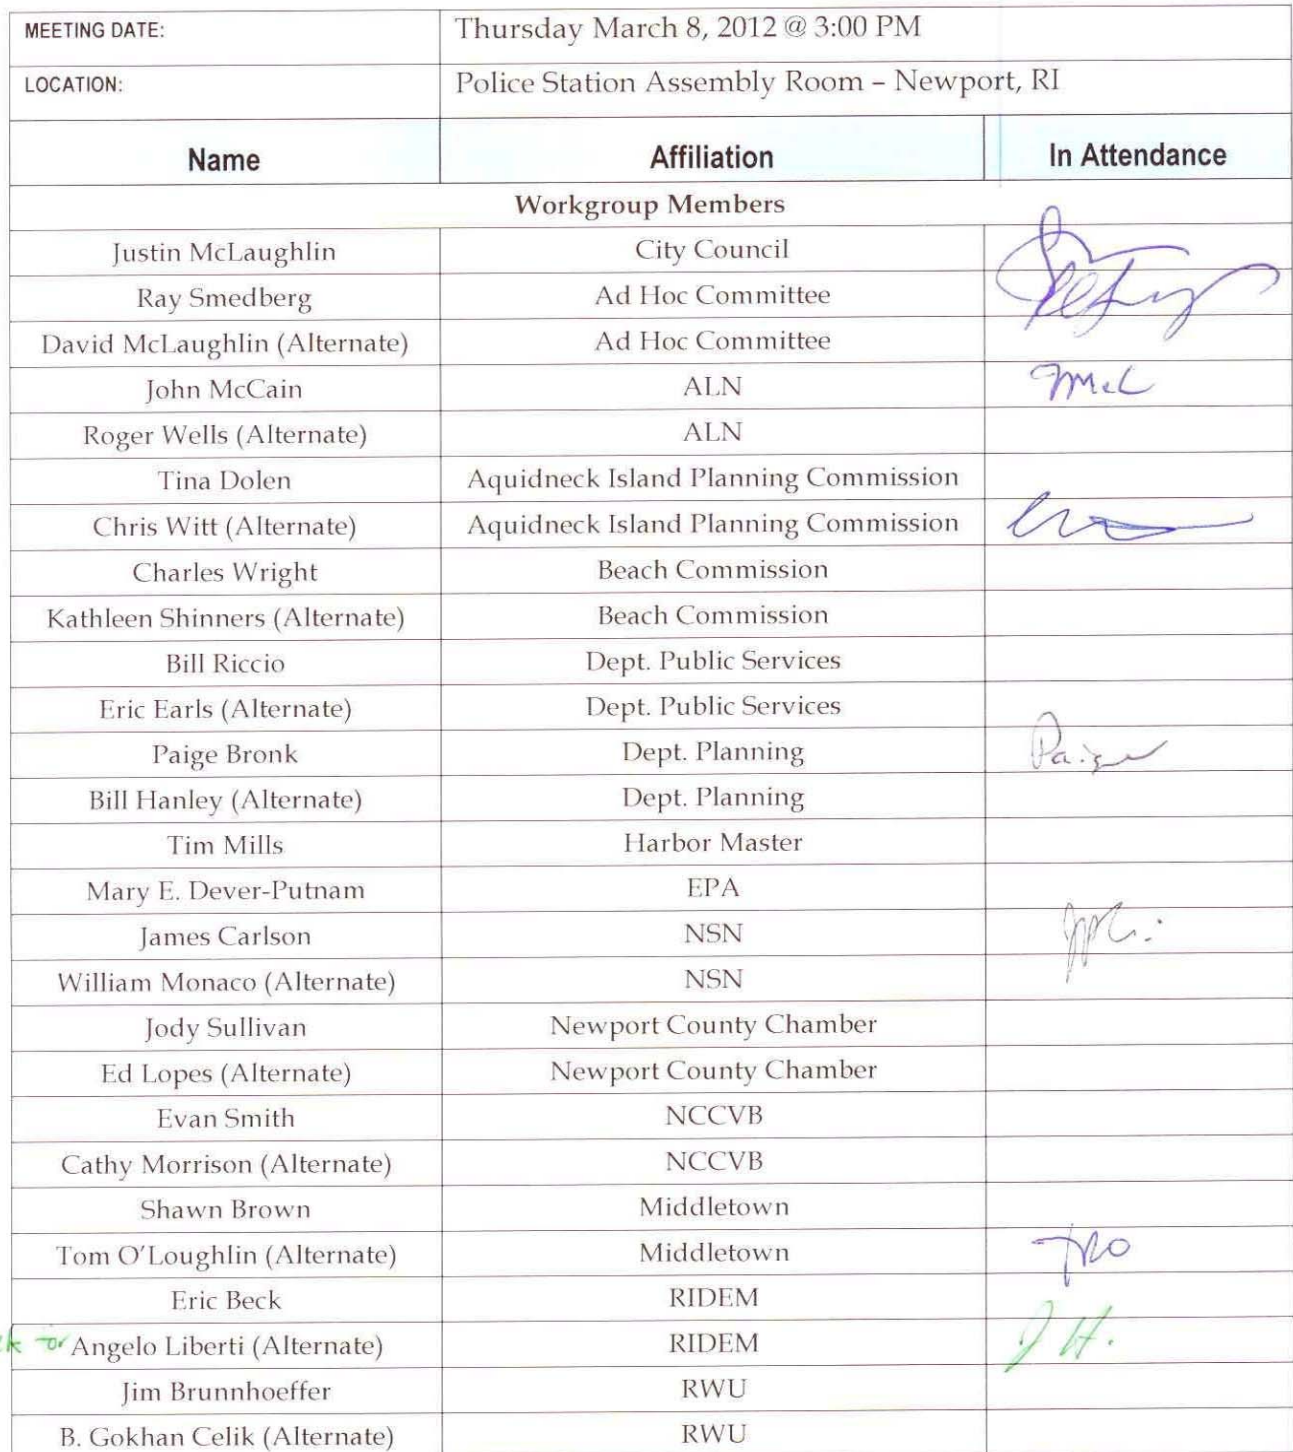 MEETING DATE: Thursday March 8, 2012 @ 3:00 PM
LOCATION: Police Station Assembly Room – Newport, RI
Name Affiliation In Attendance
Workgroup Members
Justin McLaughlin City Council
Ray Smedberg Ad Hoc Committee
David McLaughlin (Alternate) Ad Hoc Committee
John McCain ALN JMcC
Roger Wells (Alternate) ALN
Tina Dolen Aquidneck Island Planning Commission
Chris Witt (Alternate) Aquidneck Island Planning Commission
Charles Wright Beach Commission
Kathleen Shinners (Alternate) Beach Commission
Bill Riccio Dept. Public Services
Eric Earls (Alternate) Dept. Public Services
Paige Bronk Dept. Planning Paige
Bill Hanley (Alternate) Dept. Planning
Tim Mills Harbor Master
Mary E. Dever-Putnam EPA
James Carlson NSN
William Monaco (Alternate) NSN
Jody Sullivan Newport County Chamber
Ed Lopes (Alternate) Newport County Chamber
Evan Smith NCCVB
Cathy Morrison (Alternate) NCCVB
Shawn Brown Middletown
Tom O'Loughlin (Alternate) Middletown TRO
Eric Beck RIDEM
for Angelo Liberti (Alternate) RIDEM J H.
Jim Brunnhoeffer RWU
B. Gokhan Celik (Alternate) RWU